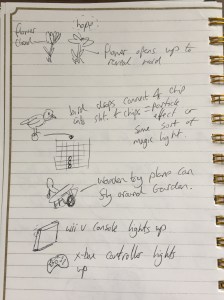 flower
closed
happy!
flower opens up to
reveal
bird drops connect 4 chip
into slot. 4 chips = particle
effect or
some sort of
magic light.
Wooden toy plane can
fly around Garden.
wii U console lights up
x-box controller lights
up